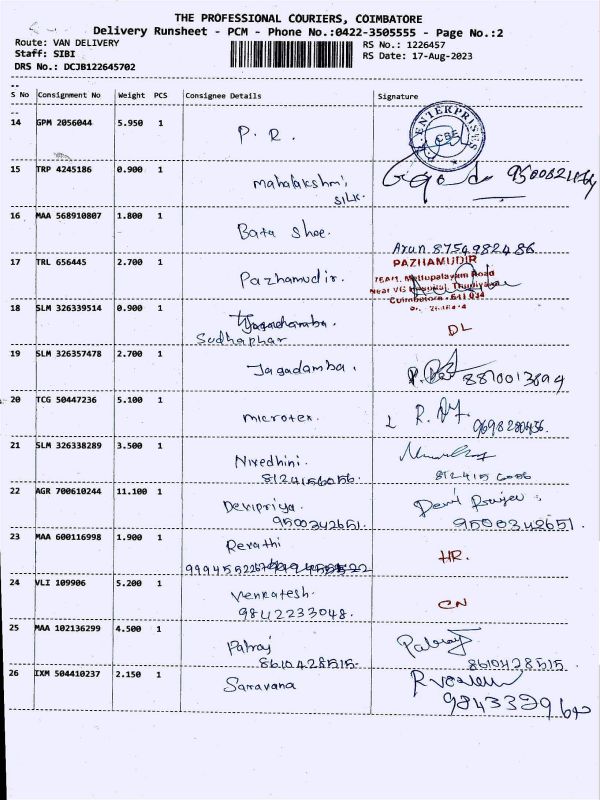 THE PROFESSIONAL COURIERS, COIMBATORE
Delivery Runsheet - PCM - Phone No.:0422-3505555 - Page No.:2
Route: VAN DELIVERY
RS No.: 1226457
Staff: SIBI
RS Date: 17-Aug-2023
DRS No.: DCJB122645702
S No Consignment No Weight PCS Consignee Details Signature
14 GPM 2056044 5.950 1 P. R.
ENTERPRISES
CBE
15 TRP 4245186 0.900 1 Mahalakshmi
SILK.
16 MAA 568910807 1.800 1 Bata Shoe.
Arun. 8754982486
17 TRL 656445 2.700 1 Pazhamudir.
PAZHAMUDIR
Mettupalayam Road
Near VG Hospital, Thudiyalur
Coimbatore - 641 034
18 SLM 326339514 0.900 1
Sudhaphar
DL
19 SLM 326357478 2.700 1 Jagadamba.
8870013694
20 TCG 50447236 5.100 1 microtex.
9698280456.
21 SLM 326338289 3.500 1 Nivedhini.
8124156056.
8124156056
22 AGR 700610244 11.100 1 Devipriya.
9500342651.
9500342651.
23 MAA 600116998 1.900 1 Revathi
HR.
24 VLI 109906 5.200 1 Venkatesh.
9842233048.
CN
25 MAA 102136299 4.500 1 Palraj
8610428515.
Palraj
8610428515
26 IXM 504410237 2.150 1 Saravana